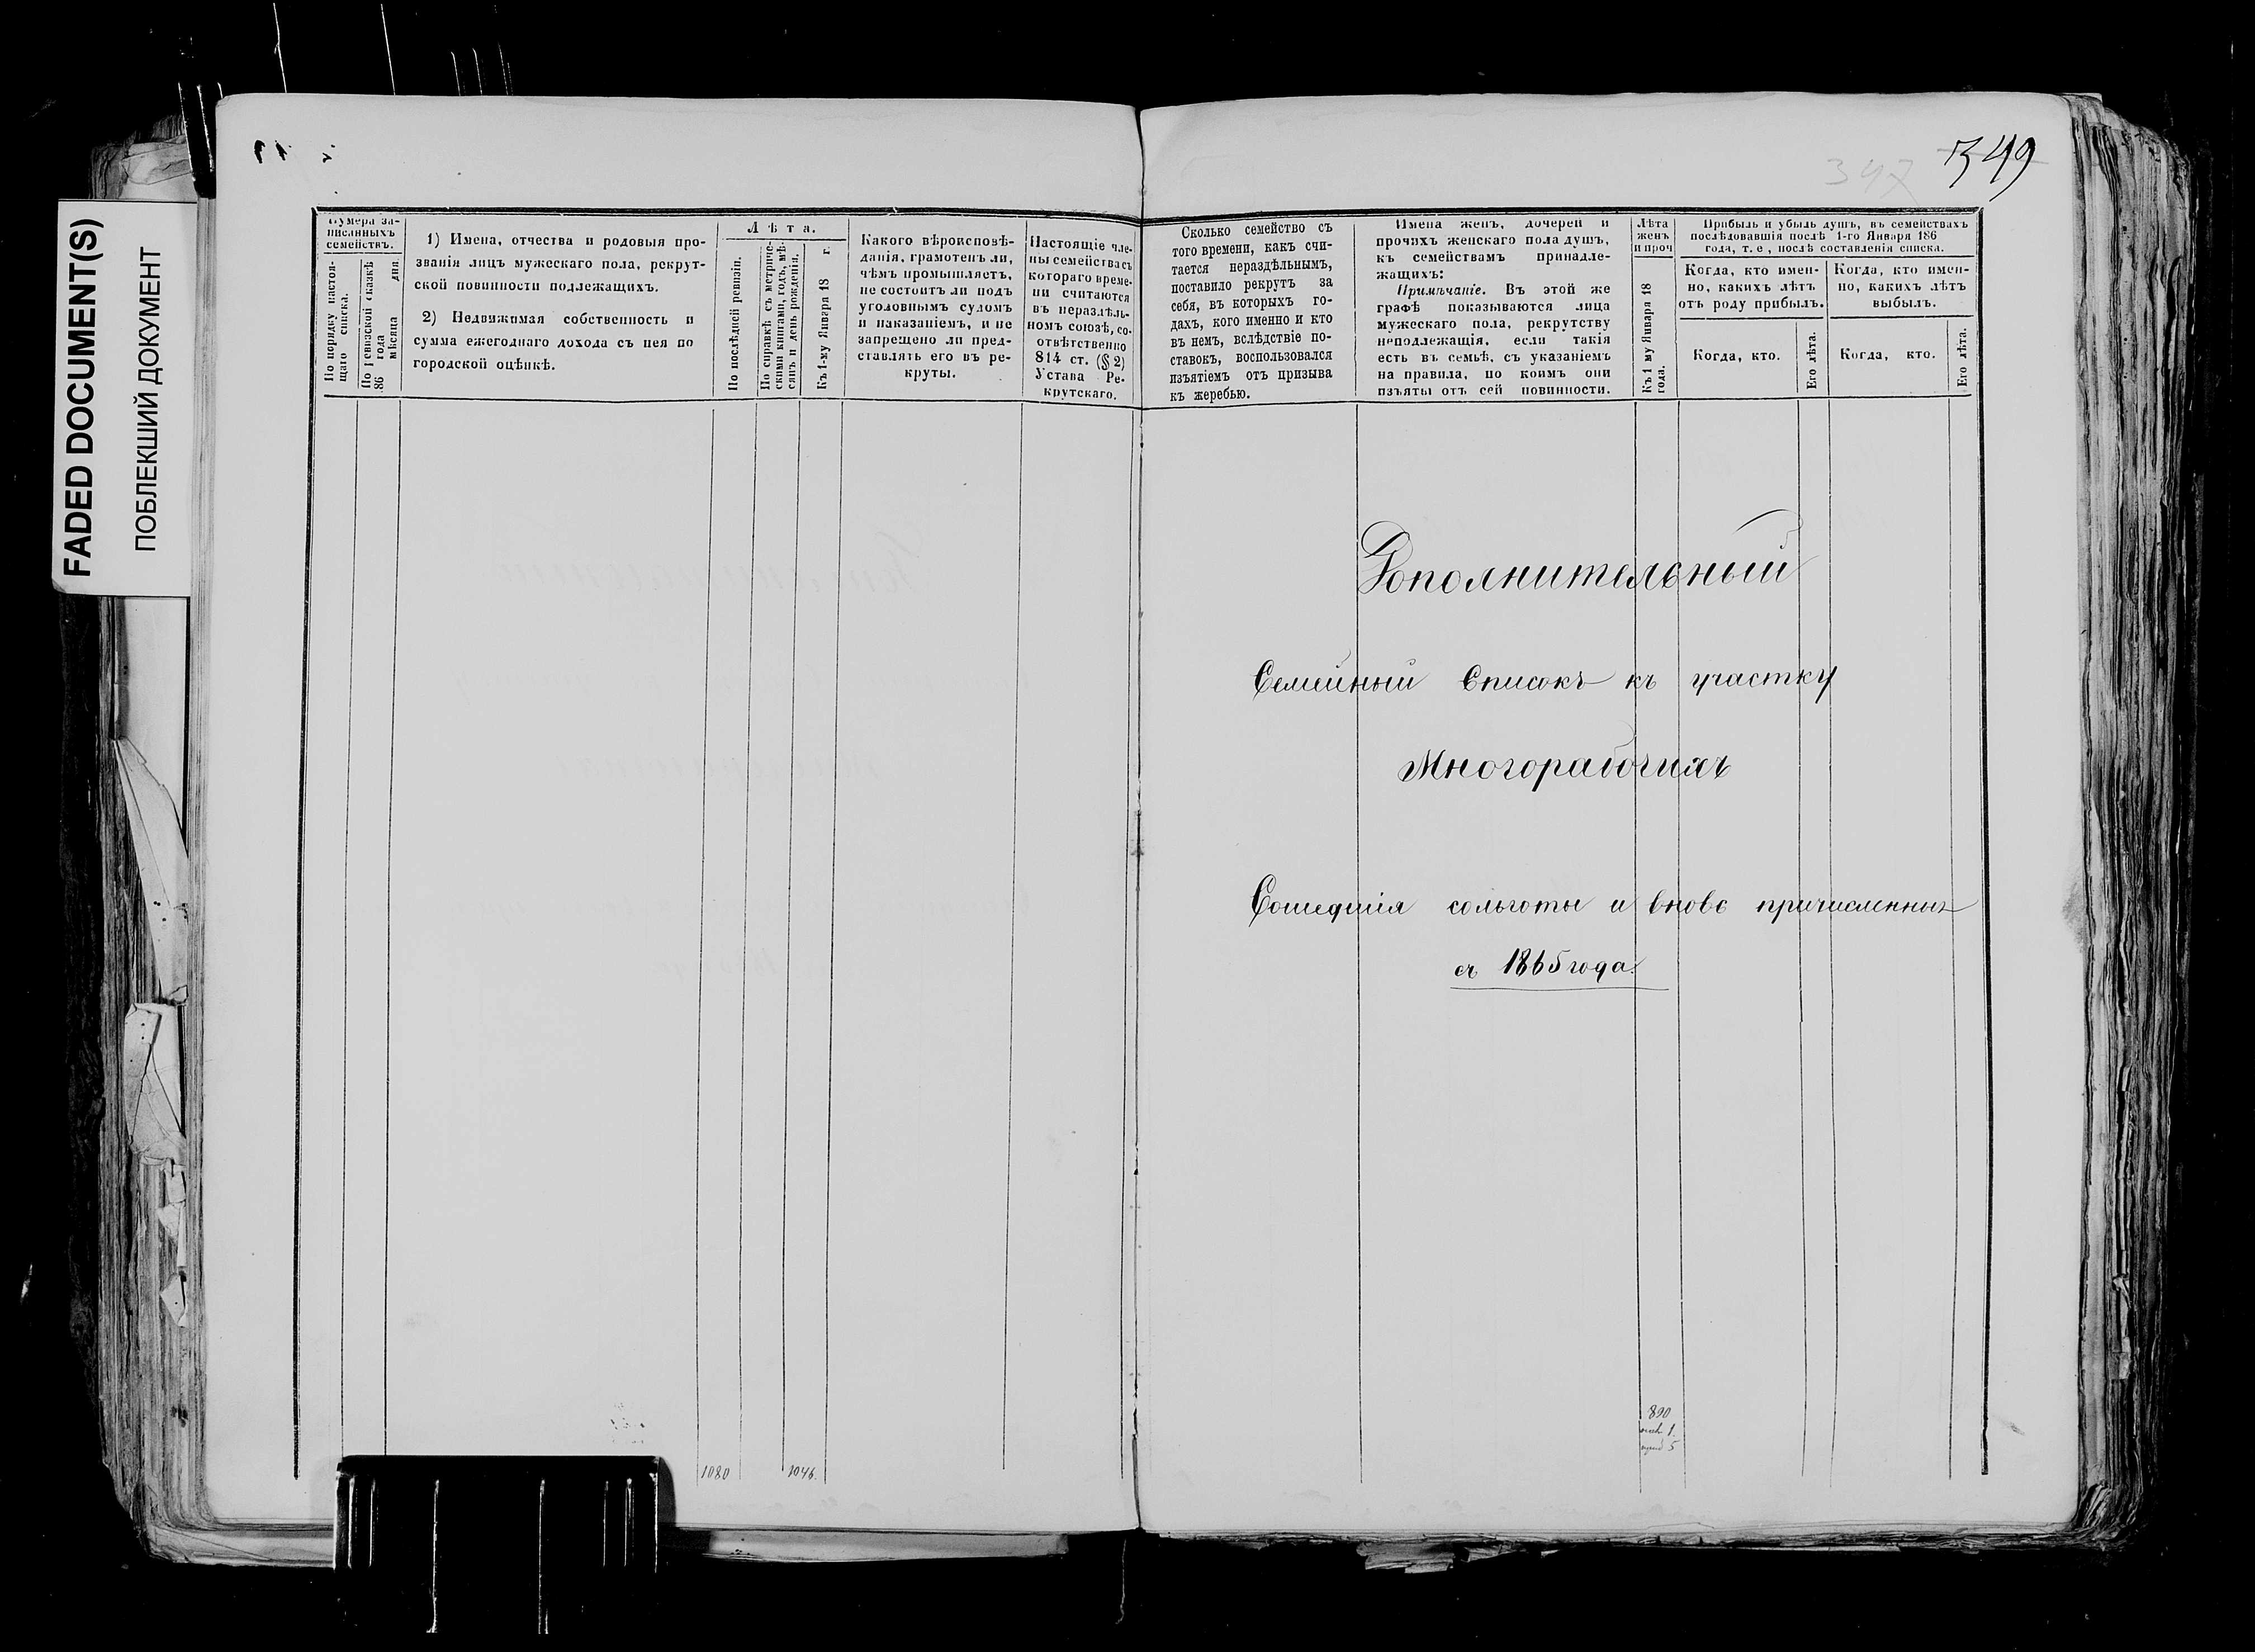 FADED DOCUMENT(S)
ПОБЛЕКШИЙ ДОКУМЕНТ
349
347
Нумера за-
писанныхъ
семействъ.
По порядку настоя-
щаго списка.
По Ревизской сказкѣ
186 года
мѣсяца дня.
1) Имена, отчества и родовыя про-
званія лицъ мужескаго пола, рекрут-
ской повинности подлежащихъ.
2) Недвижимая собственность и
сумма ежегоднаго дохода съ нея по
городской оцѣнкѣ.
Лѣта.
По послѣдней ревизіи.
По справкѣ съ метриче-
скими книгами, годъ, мѣ-
сяцъ и день рожденія.
Къ 1-му Января 18 г.
Какого вѣроисповѣ-
данія, грамотенъ ли,
чѣмъ промышляетъ,
не состоитъ ли подъ
уголовнымъ судомъ
и наказаніемъ, и не
запрещено ли пред-
ставлять его въ ре-
круты.
Настоящіе чле-
ны семейства съ
котораго време-
ни считаются
въ нераздѣль-
номъ союзѣ, со-
отвѣтственно
814 ст. (§ 2)
Устава Ре-
крутскаго.
Сколько семейство съ
того времени, какъ счи-
тается нераздѣльнымъ,
поставило рекрутъ за
себя, въ которыхъ го-
дахъ, кого именно и кто
въ немъ, вслѣдствіе по-
ставокъ, воспользовался
изъятіемъ отъ призыва
къ жеребью.
Имена женъ, дочерей и
прочихъ женскаго пола душъ,
къ семействамъ принадле-
жащихъ:
Примѣчаніе. Въ этой же
графѣ показываются лица
мужескаго пола, рекрутству
неподлежащія, если такія
есть въ семьѣ, съ указаніемъ
на правила, по коимъ они
изъяты отъ сей повинности.
Лѣта
женъ
и проч
Къ 1 му Января 18
года.
Прибыль и убыль душъ, въ семействахъ
послѣдовавшія послѣ 1-го Января 186
года, т. е., послѣ составленія списка.
Когда, кто имен-
но, какихъ лѣтъ
отъ роду прибылъ.
Когда, кто.
Его лѣта.
Когда, кто имен-
но, какихъ лѣтъ
выбылъ.
Когда, кто.
Его лѣта.
Дополнительный
Семейный Списокъ къ участку
Многорабочихъ
Сошедшія сольготы и вновь причисленных
съ 1865 года.
1080
1046.
890
1.
5